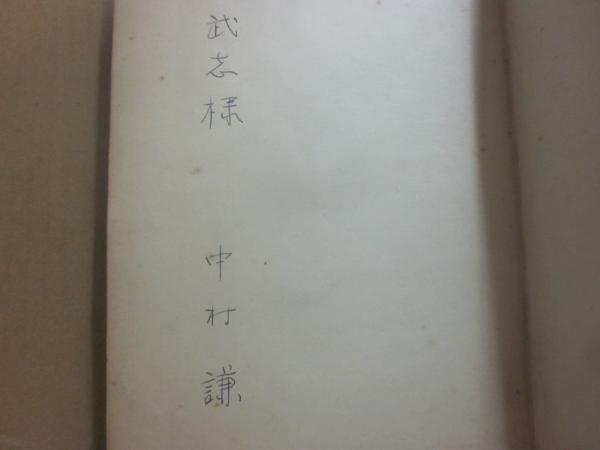 武志様 中村謙